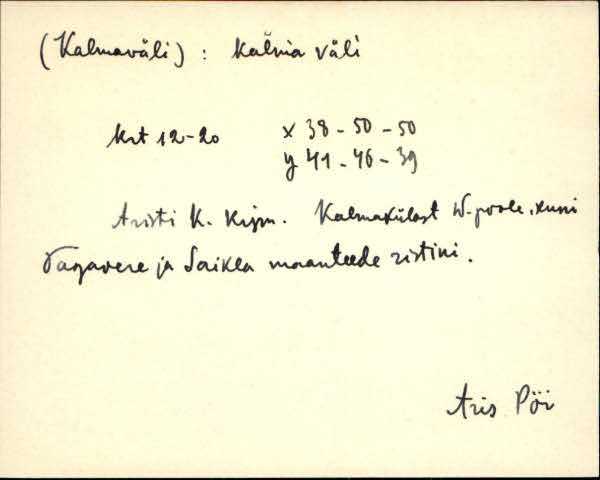 (Kalmaväli) : kalma väli
krt 12-20 x 38-50-50
y 41-46-39
Aristi K. Kalmakülast W-poole, kuni
Vagavere ja Saikla maanteede ristini.
Aris Pöi